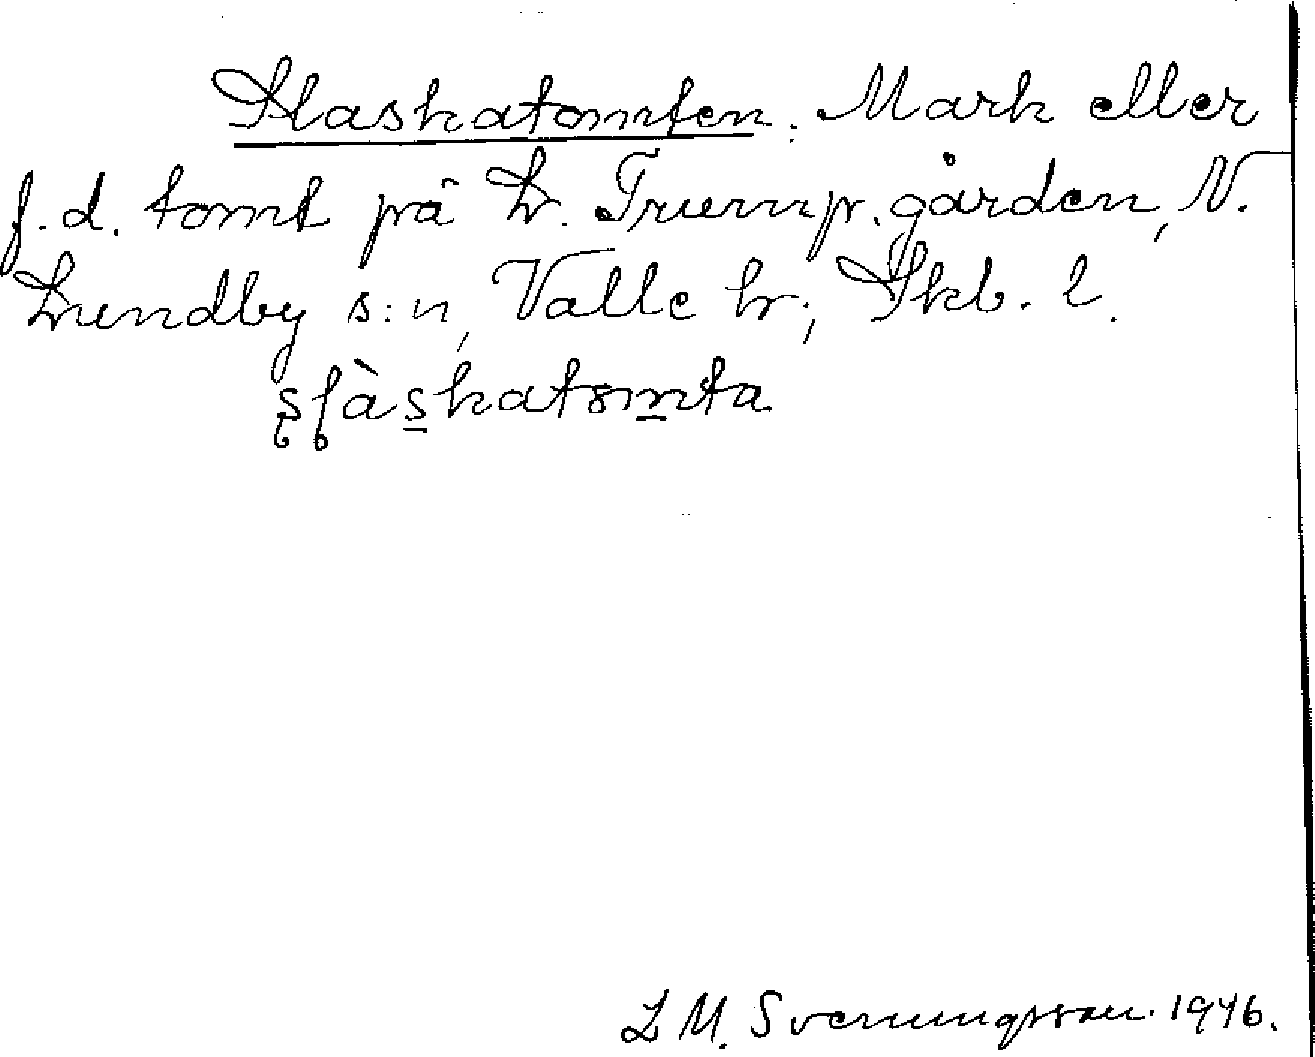 Slaskatomten. Mark eller
f.d. tomt på L. Trump.gården, N.
Lundby s:n, Valle hr; Skb. l.
L M. Svenungsson. 1946.